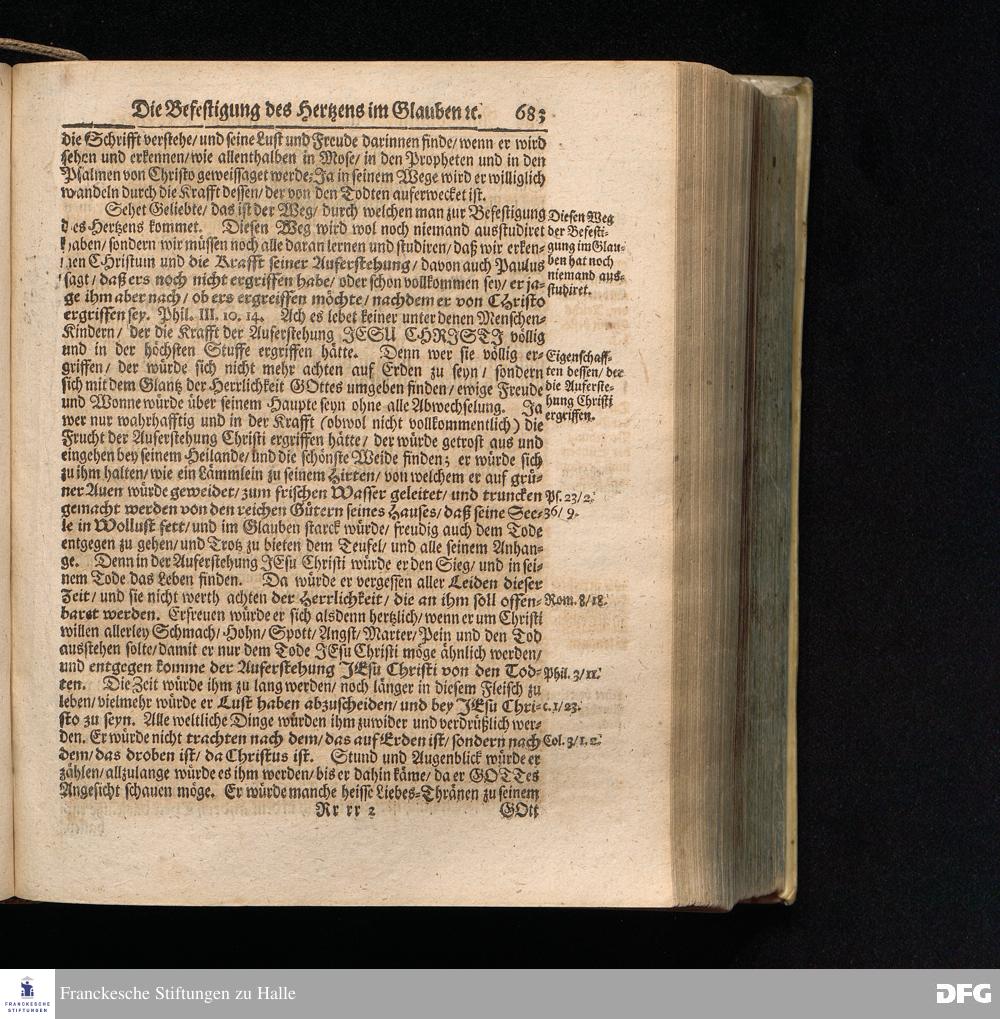 Die Befestigung des Hertzens im Glauben ꝛc. 683
die Schrifft verstehe/ und seine Lust und Freude darinnen finde/ wenn er wird
sehen und erkennen/ wie allenthalben in Mose/ in den Propheten und in den
Psalmen von Christo geweissaget werde; Ja in seinem Wege wird er williglich
wandeln durch die Krafft dessen/ der von den Todten auferwecket ist.
Sehet Geliebte/ das ist der Weg/ durch welchen man zur Befestigung
des Hertzens kommet. Diesen Weg wird wol noch niemand ausstudiret
haben/ sondern wir müssen noch alle daran lernen und studiren/ daß wir erken-
nen CHristum und die Krafft seiner Auferstehung/ davon auch Paulus
sagt/ daß ers noch nicht ergriffen habe/ oder schon vollkommen sey/ er ja-
ge ihm aber nach/ ob ers ergreiffen möchte/ nachdem er von Christo
ergriffen sey. Phil. III. 10. 14. Ach es lebet keiner unter denen Menschen-
Kindern/ der die Krafft der Auferstehung JESU CHRISTI völlig
und in der höchsten Stuffe ergriffen hätte. Denn wer sie völlig er-
griffen/ der würde sich nicht mehr achten auf Erden zu seyn/ sondern
sich mit dem Glantz der Herrlichkeit GOttes umgeben finden/ ewige Freude
und Wonne würde über seinem Haupte seyn ohne alle Abwechselung. Ja
wer nur wahrhafftig und in der Krafft (obwol nicht vollkommentlich) die
Frucht der Auferstehung Christi ergriffen hätte/ der würde getrost aus und
eingehen bey seinem Heilande/ und die schönste Weide finden; er würde sich
zu ihm halten/ wie ein Lämmlein zu seinem Hirten/ von welchem er auf grü-
ner Auen würde geweidet/ zum frischen Wasser geleitet/ und truncken
gemacht werden von den reichen Gütern seines Hauses/ daß seine See-
le in Wollust fett/ und im Glauben starck würde/ freudig auch dem Tode
entgegen zu gehen/ und Trotz zu bieten dem Teufel/ und alle seinem Anhan-
ge. Denn in der Auferstehung JEsu Christi würde er den Sieg/ und in sei-
nem Tode das Leben finden. Da würde er vergessen aller Leiden dieser
Zeit/ und sie nicht werth achten der Herrlichkeit/ die an ihm soll offen-
baret werden. Erfreuen würde er sich alsdenn hertzlich/ wenn er um Christi
willen allerley Schmach/ Hohn/ Spott/ Angst/ Marter/ Pein und den Tod
ausstehen solte/ damit er nur dem Tode JEsu Christi möge ähnlich werden/
und entgegen komme der Auferstehung JEsu Christi von den Tod-
ten. Die Zeit würde ihm zu lang werden/ noch länger in diesem Fleisch zu
leben/ vielmehr würde er Lust haben abzuscheiden/ und bey JEsu Chri-
sto zu seyn. Alle weltliche Dinge würden ihm zuwider und verdrüßlich wer-
den. Er würde nicht trachten nach dem/ das auf Erden ist/ sondern nach
dem/ das droben ist/ da Christus ist. Stund und Augenblick würde er
zählen/ allzulange würde es ihm werden/ bis er dahin käme/ da er GOTTes
Angesicht schauen möge. Er würde manche heisse Liebes-Thränen zu seinem
Rr rr 2 GOtt
Diesen Weg
der Befesti-
gung im Glau-
ben hat noch
niemand aus-
studiret.
Eigenschaff-
ten dessen/ der
die Auferste-
hung Christi
ergriffen.
Ps. 23/ 2.
36/ 9.
Rom. 8/ 18.
Phil. 3/ 11.
c. 1/ 23.
Col. 3/ 1. 2.
FRANCKESCHE
STIFTUNGEN
Franckesche Stiftungen zu Halle
DFG